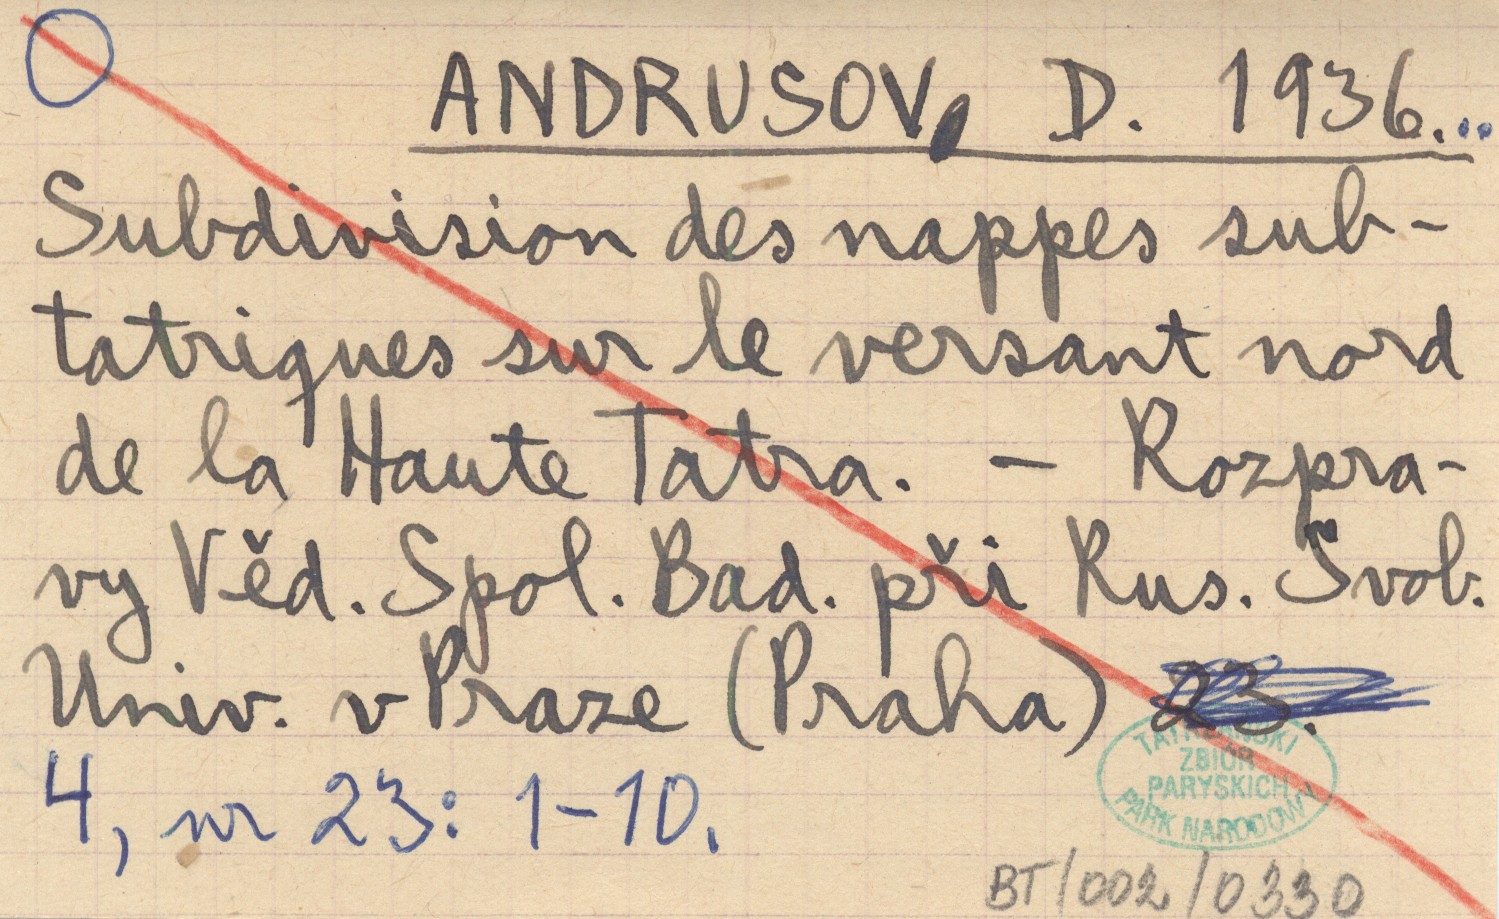 ANDRUSOV, D. 1936...
Subdivision des nappes sub-
tatriques sur le versant nord
de la Haute Tatra. — Rozpra-
vy Věd. Spol. Bad. při Rus. Švob.
Univ. v Praze (Praha) 23.
4, nr 23: 1-10.
TATRZAŃSKI
ZBIÓR
PARYSKICH
PARK NARODOWY
BT/002/0330